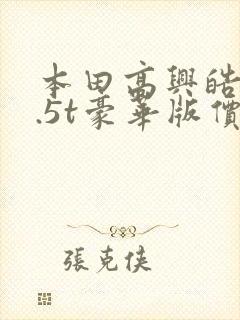 本田高興皓
.5t豪華版價
張克俠